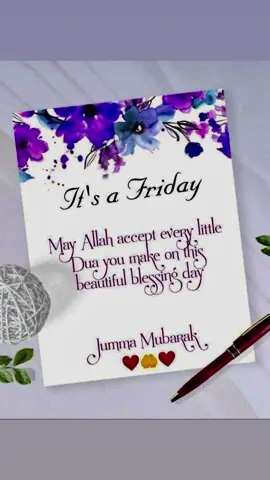 It's a Friday
May Allah accept every little
Dua you make on this
beautiful blessing day
Jumma Mubarak
❤️🤲❤️